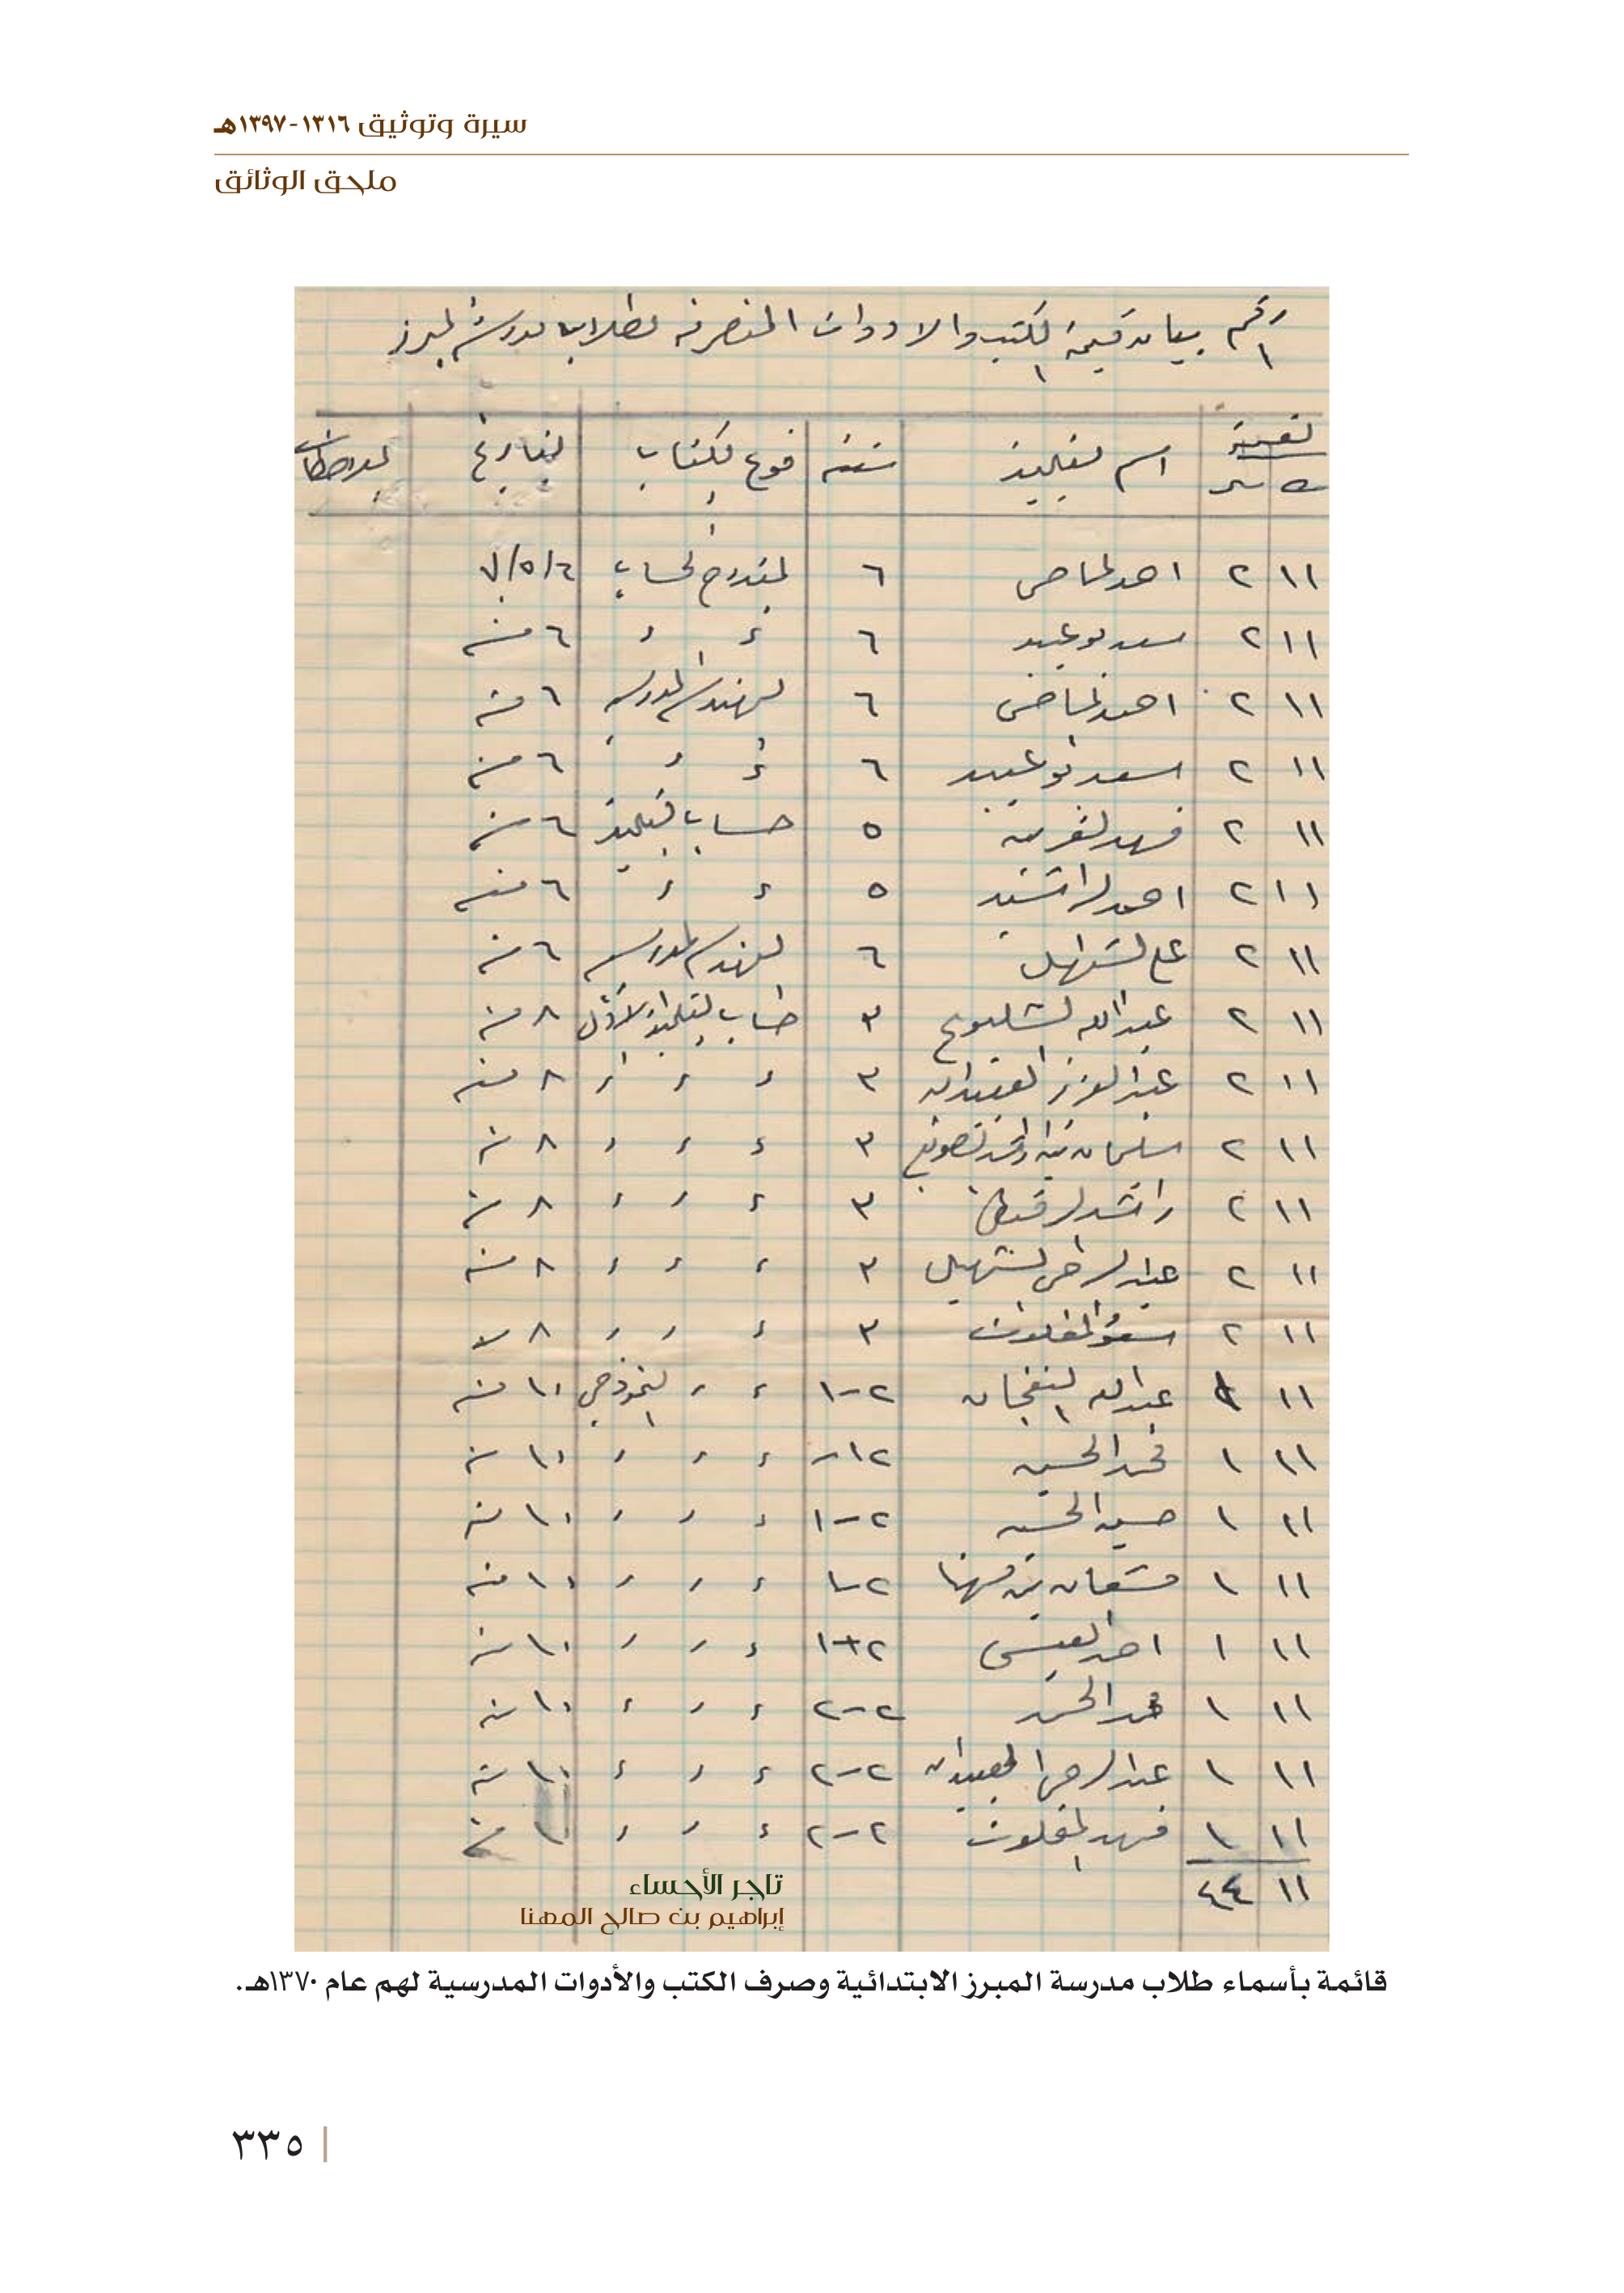 سيرة وتوثيق ١٣١٦-١٣٩٧هـ
ملحق الوثائق
رقم ١ بيان قيمة الكتب والادوات المنصرفه لطلاب مدرسة المبرز
القيمة
اسم التلميذ سنة نوع الكتاب التاريخ الملاحظات
١١ ٢ احمد ٦ الحساب ٦/٥/
١١ ٢ سعد بوعبيد ٦ ٦ منه
١١ ٢ احمد ٦ الهندسة المدرسيه ٦ منه
١١ ٢ اسعد بوعبيد ٦ ٦ منه
١١ ٢ فهد ٥ حساب التلميذ ٦ منه
١١ ٢ احمد الراشد ٥ ٦ منه
١١ ٢ علي السهيل ٦ الهندسه المدرسيه ٦ منه
١١ ٢ عبدالله ٣ حساب التلميذ الاول ٨ منه
١١ ٢ عبدالعزيز العبيدان ٣ ٨ منه
١١ ٢ سلمان ٣ ٨ منه
١١ ٢ راشد ٣ ٨ منه
١١ ٢ عبدالرحمن السهيل ٣ ٨ منه
١١ ٢ المغلوث ٣ ٨
١١ عبدالله ٢-١ النموذجي ١٠ منه
١١ ١ الحسين ١٠ منه
١١ ١ حسين الحسين ٢-١ ١٠ منه
١١ ١ مشعان بن مهنا ٢-١ ١٠ منه
١١ ١ احمد العيسى ٢-١ ١٠ منه
١١ ١ ٢-٢ ١٠ منه
١١ ١ عبدالرحمن العبيدان ٢-٢ ١٠ منه
١١ ١ فهد المغلوث ٢-٢ ١٠ منه
١١
تاجر الأحساء
إبراهيم بن صالح المهنا
قائمة بأسماء طلاب مدرسة المبرز الابتدائية وصرف الكتب والأدوات المدرسية لهم عام ١٣٧٠هـ.
٣٣٥